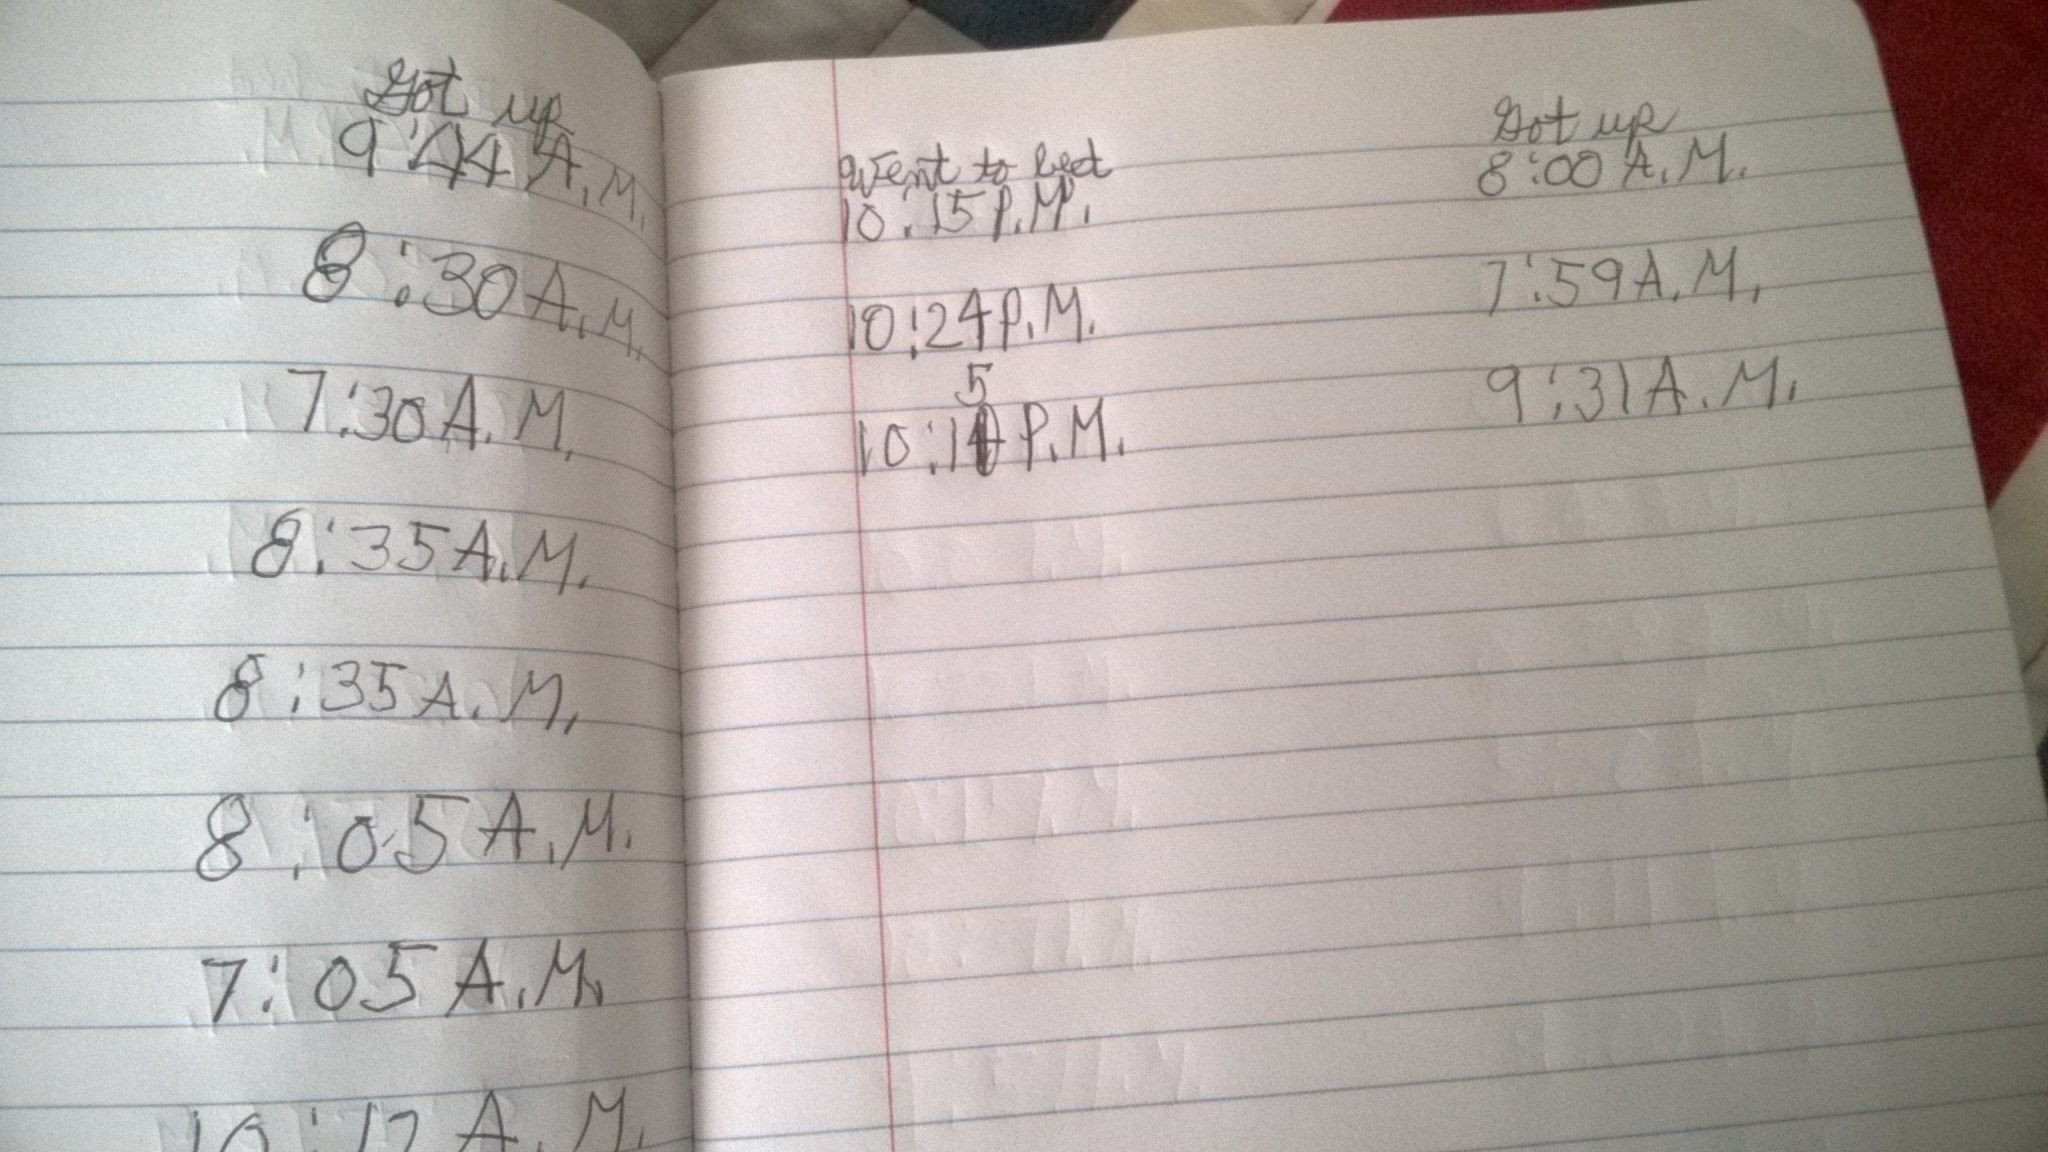 Got up
9:44 A.M.
8:30 A.M.
7:30 A.M.
8:35 A.M.
8:35 A.M.
8:05 A.M.
7:05 A.M.
A.M.
Went to bed
Got up
10:15 P.M.
8:00 A.M.
10:24 P.M.
7:59 A.M.
5
10:1 P.M.
9:31 A.M.